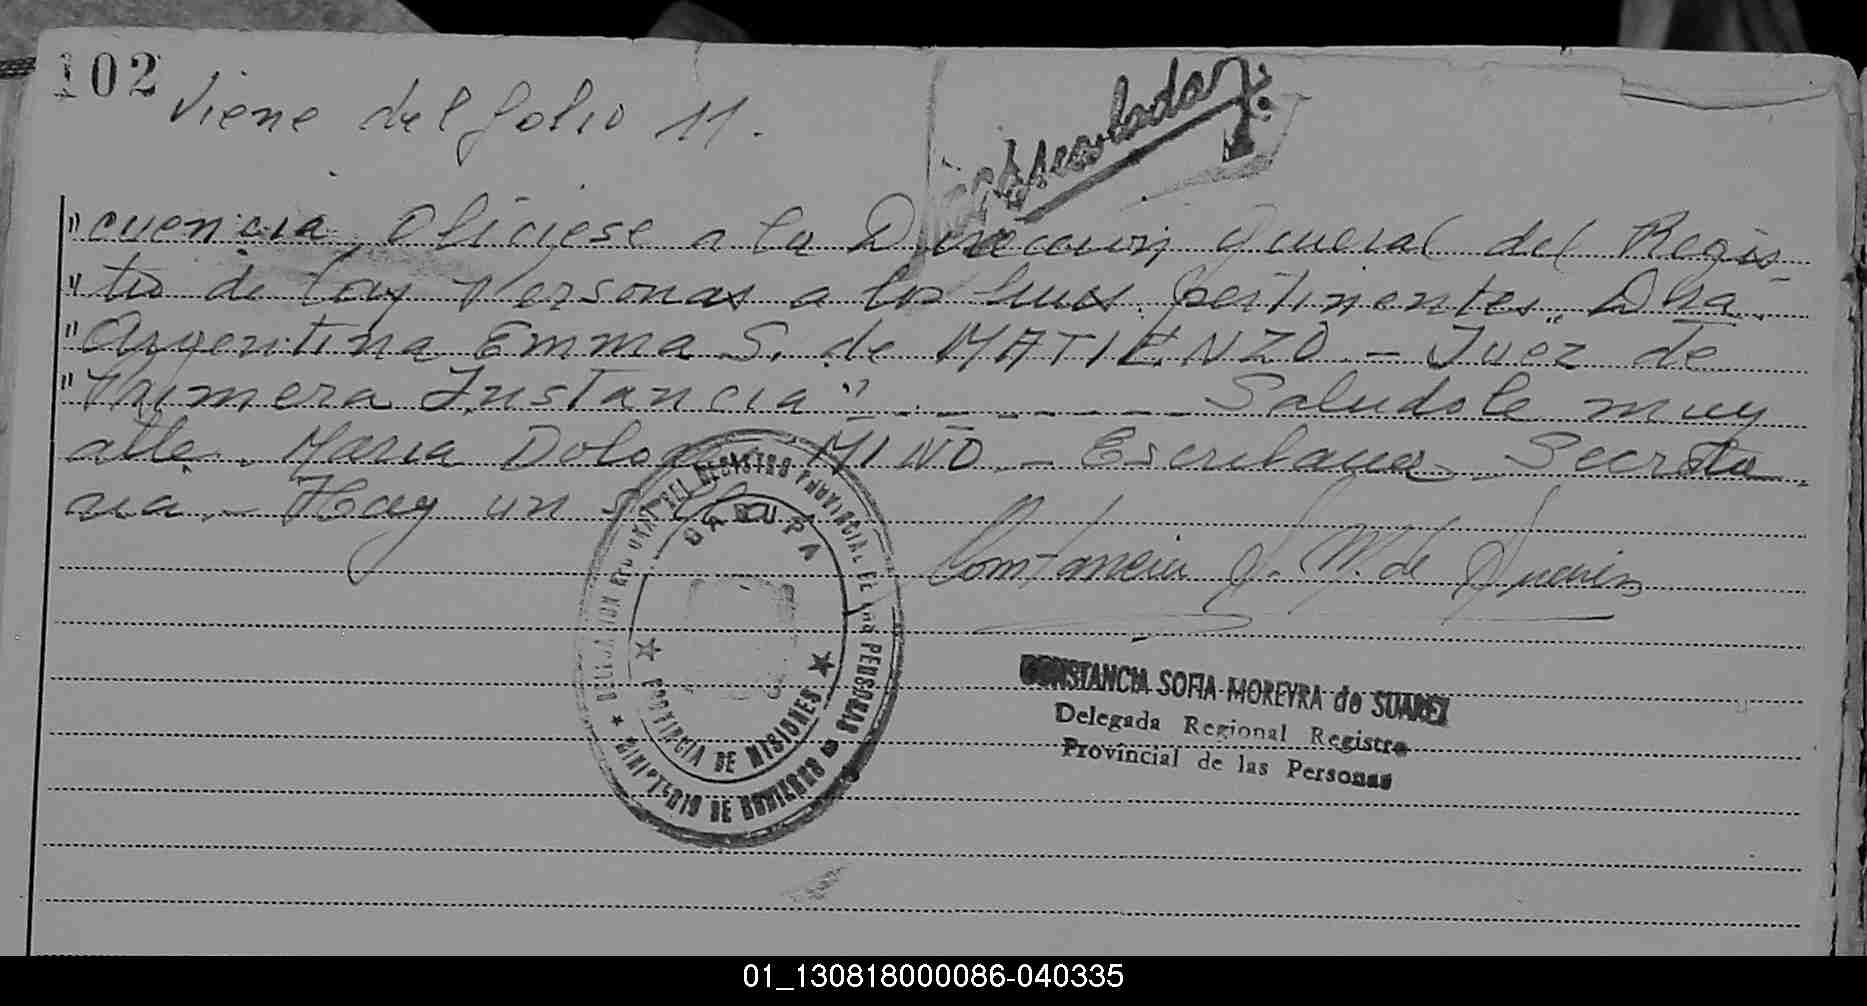 102
Viene del folio 11.
"cuencia, Ofíciese a la Dirección General del Regis-
"tro de las Personas a los fines pertinentes. Dra.
"Argentina Emma S. de MATIENZO - Juez de
"Primera Instancia" - - - - - - - Saludole muy
atte. Maria Dolores MIÑO - Escribana Secreta
ria.- Hay un sello
Constancia S. M. de Suarez
DELEGACION REGIONAL DEL REGISTRO PROVINCIAL DE LAS PERSONAS
GARUPA
PROVINCIA DE MISIONES
MINISTERIO DE GOBIERNO
CONSTANCIA SOFIA MOREYRA de SUAREZ
Delegada Regional Registro
Provincial de las Personas
01_130818000086-040335